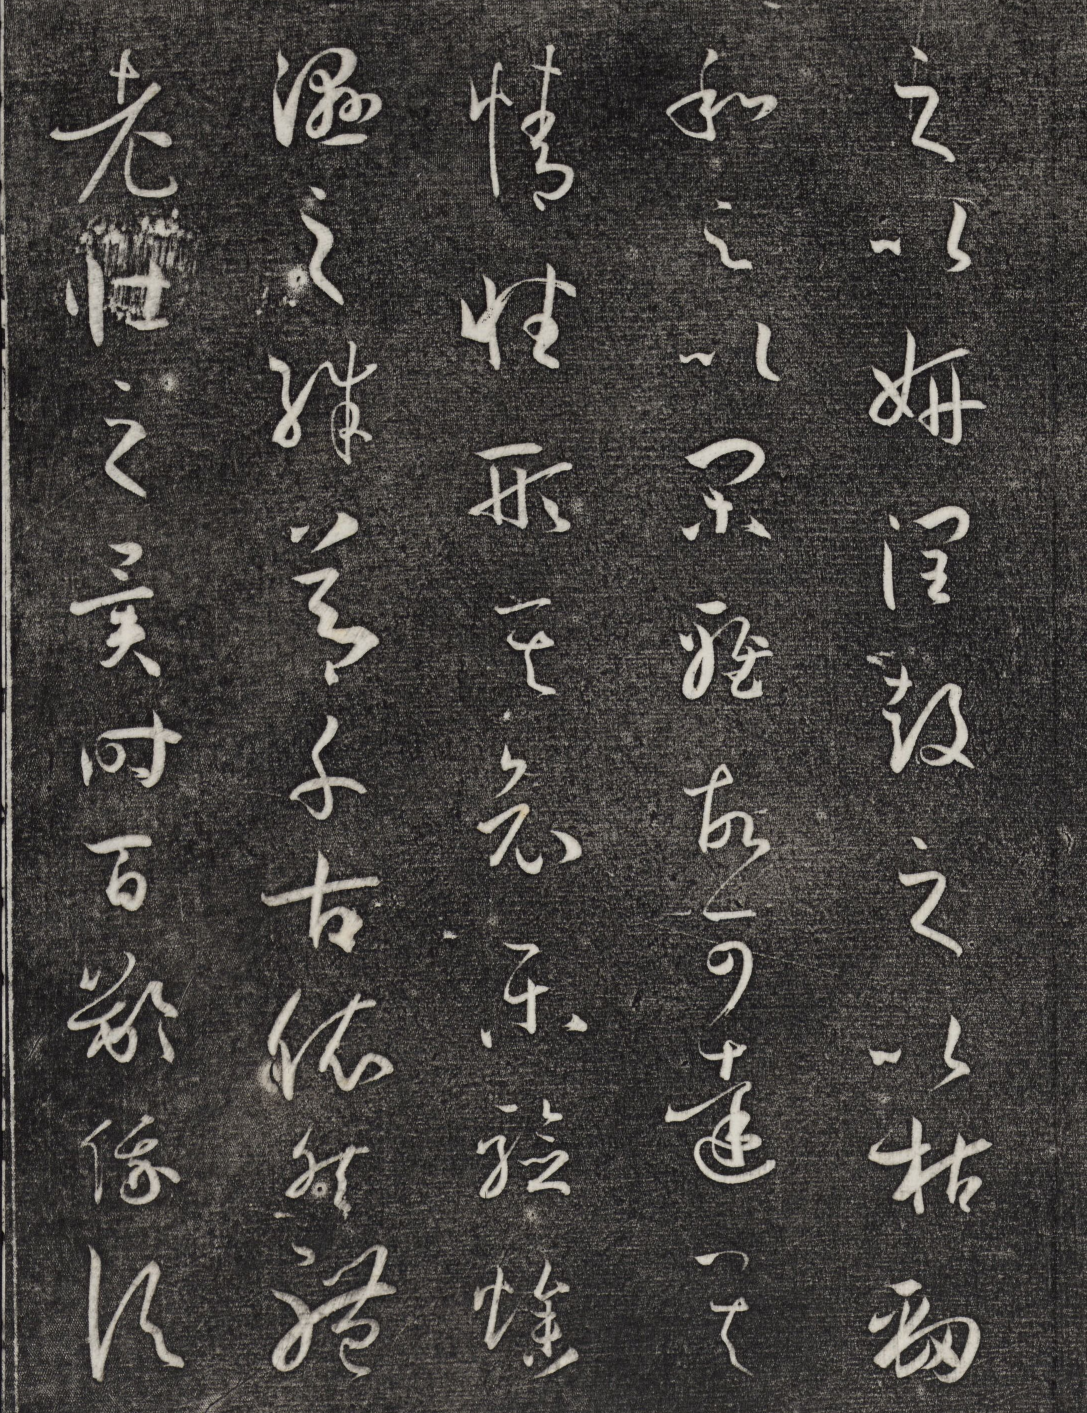 之以妍潤鼓之以枯勁
和之以閑雅故可達其
情性形其哀樂驗燥
濕之殊節千古依然體
老壯之異時百齡俄頃